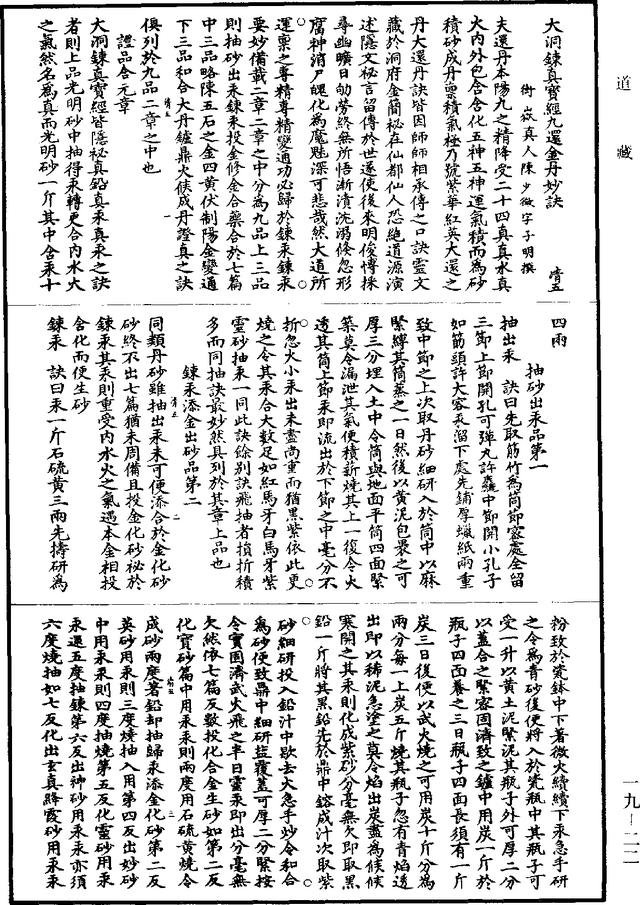 道藏
大洞鍊真寶經九還金丹妙訣
清五
衡嶽真人陳少微字子明撰
夫還丹本陽九之精降受二十四真真水真
火內外包含含化五神五神運氣積而為砂
積砂成丹稟積氣極乃號紫華紅英大還之
丹大還丹訣皆因師師相承傳之口訣靈文
藏於洞府金簡祕在仙都仙人恐絕道源演
述隱文祕言留傳於世遂使後來明俊博採
尋幽曠日劬勞終無所悟漸漬沈溺倏忽形
腐神消尸魄化為魔魅深可悲哉然大道所
運稟之專精專精變通功必歸於鍊汞鍊汞
要妙備載二章二章之中分為九品上三品
則抽砂出汞鍊汞投金修金合藥合於七篇
中三品略陳五石之金四黃伏制陽金變通
下三品和合大丹鑪鼎火候成丹證真之訣
俱列於九品二章之中也
證品含元章
大洞鍊真寶經皆隱祕真鉛真汞真朱之訣
者則上品光明砂中抽得汞轉更合內水火
之氣然名為真而光明砂一斤其中含汞十
四兩
抽砂出汞品第一
抽出汞　訣曰先取筋竹為筒節密處全留
三節上節開孔可彈丸許麤中節開小孔子
如筋頭許大容汞溜下處先鋪厚蠟紙兩重
致中節之上次取丹砂細研入於筒中以麻
緊縛其筒蒸之一日然後以黃泥包裹之可
厚三分埋入土中令筒與地面平筒四面緊
築莫令漏泄其氣便積薪燒其上一復令火
透其筒上節汞即流出於下節之中毫分不
折忽火小汞出未盡尚重而猶黑紫依此更
燒之令其汞合大數足如紅馬牙白馬牙紫
靈砂抽汞一同此訣餘別訣飛抽者損折積
多而不同抽訣最妙然具列於其章上品也
鍊汞添金出砂品第二
同類丹砂雖抽出汞未可便添合於金化砂
砂終不出七篇猶未周備且投金化砂祕於
鍊汞其汞則重受內水火之氣遇本金相投
含化而便生砂
鍊汞　訣曰汞一斤石硫黃三兩先擣研為
粉致於瓷鉢中下著微火續續下汞急手研
之令為青砂後便將入於瓷瓶中其瓶子可
受一升以黃土泥緊泥其瓶子外可厚二分
以蓋合之緊密固濟致之鑪中用炭一斤於
瓶子四面養之三日瓶子四面長須有一斤
炭三日後便以武火燒之可用炭十斤分為
兩分每一上炭五斤燒其瓶子忽有青焰透
出即以稀泥急塗之莫令焰出炭盡為候候
寒開之其汞則化成紫砂分毫無欠即取黑
鉛一斤將其黑鉛先於鼎中鎔成汁次取紫
砂細研投入鉛汁中歇去火急手炒令和合
為砂便致鼎中細研盐覆蓋可厚二分緊按
令實固濟武火飛之半日靈汞即出分毫無
欠然依七篇反數投化合金生砂如第二反
化寶砂篇中用汞汞則兩度用石硫黃燒令
成砂兩度著鉛却抽歸汞添金化砂第二反
英砂用汞則三度燒抽入用第四反出妙砂
中用汞汞則四度抽燒第五反化靈砂用汞
汞還五度抽鍊第六反出神砂用汞汞亦須
六度燒抽如七反化出玄真絳霞砂用汞汞
一九－二二